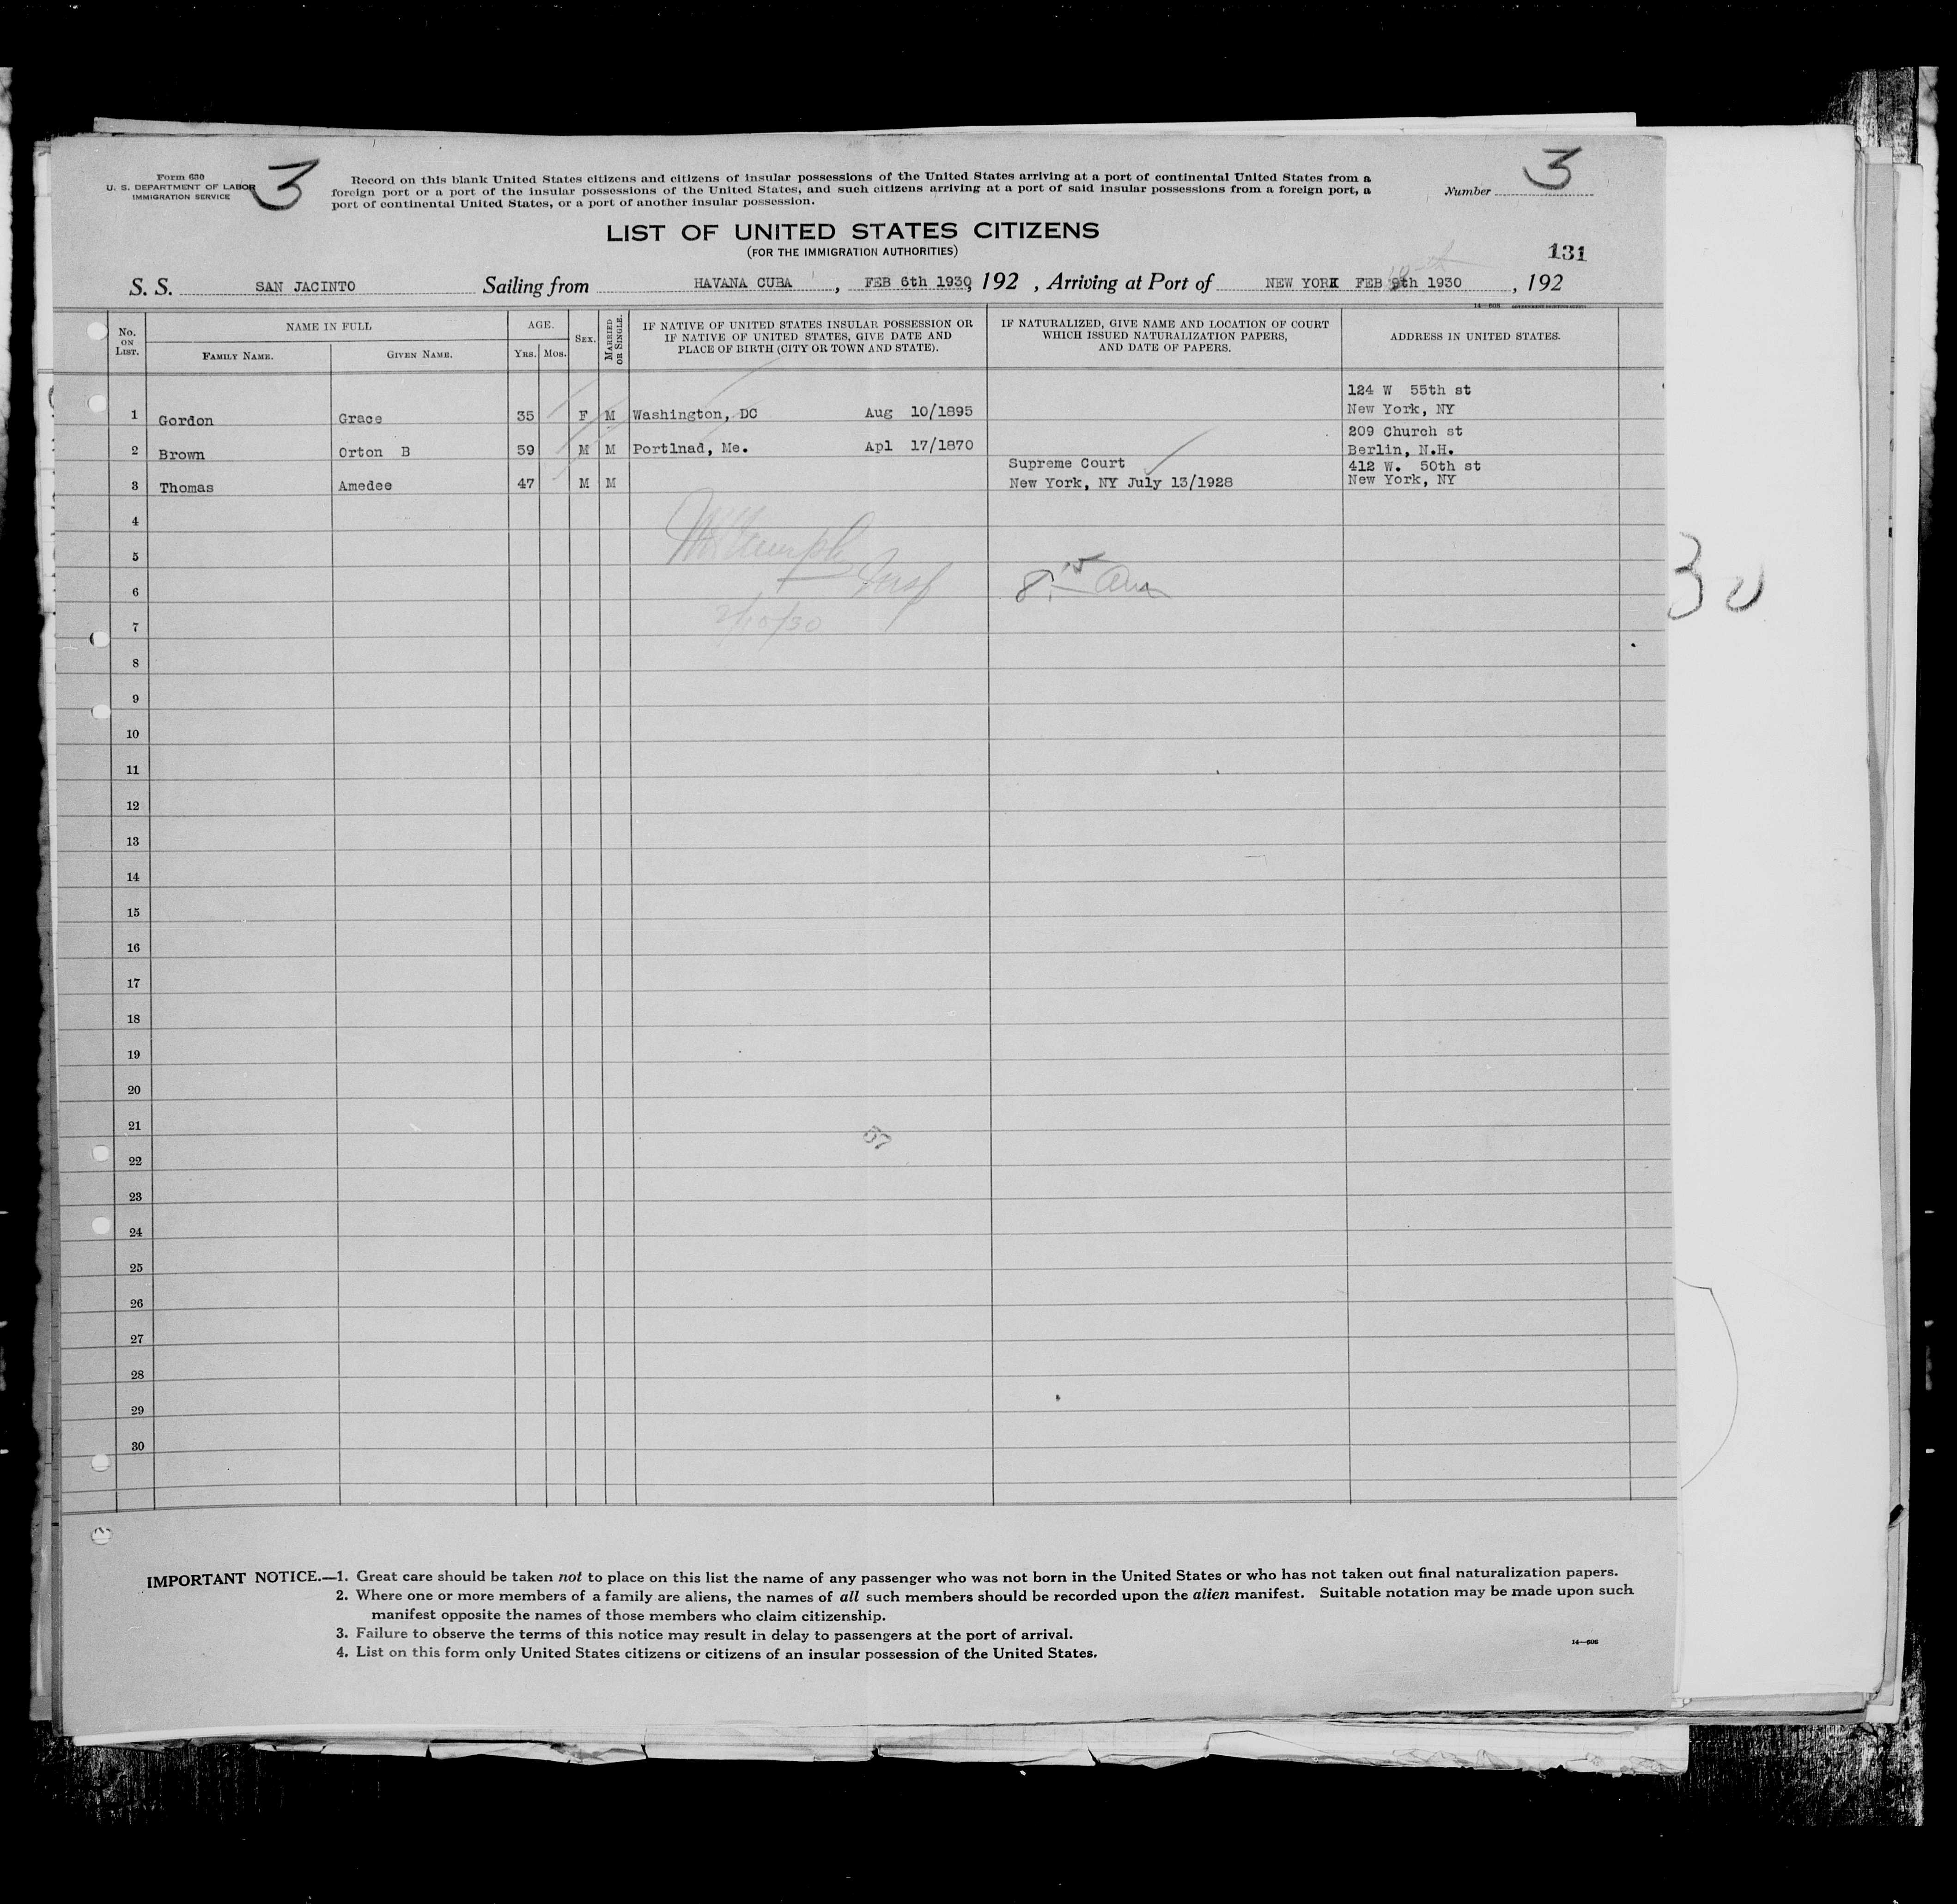 Form 630
U. S. DEPARTMENT OF LABOR
IMMIGRATION SERVICE
3
Record on this blank United States citizens and citizens of insular possessions of the United States arriving at a port of continental United States from a
foreign port or a port of the insular possessions of the United States, and such citizens arriving at a port of said insular possessions from a foreign port, a
port of continental United States, or a port of another insular possession.
Number 3
LIST OF UNITED STATES CITIZENS
(FOR THE IMMIGRATION AUTHORITIES)
131
S. S. SAN JACINTO Sailing from HAVANA CUBA , FEB 6th 1930, 192 , Arriving at Port of NEW YORK FEB 9th 1930 , 192
10th
14—608 GOVERNMENT PRINTING OFFICE
No. ON LIST.
NAME IN FULL
FAMILY NAME. GIVEN NAME.
AGE.
Yrs. Mos.
SEX.
MARRIED OR SINGLE.
IF NATIVE OF UNITED STATES INSULAR POSSESSION OR
IF NATIVE OF UNITED STATES, GIVE DATE AND
PLACE OF BIRTH (CITY OR TOWN AND STATE).
IF NATURALIZED, GIVE NAME AND LOCATION OF COURT
WHICH ISSUED NATURALIZATION PAPERS,
AND DATE OF PAPERS.
ADDRESS IN UNITED STATES.
124 W 55th st
1 Gordon Grace 35 F M Washington, DC Aug 10/1895 New York, NY
209 Church st
2 Brown Orton B 59 M M Portlnad, Me. Apl 17/1870 Berlin, N.H.
Supreme Court 412 W. 50th st
3 Thomas Amedee 47 M M New York, NY July 13/1928 New York, NY
4
5
Insp
6
2/10/30
7
8
9
10
11
12
13
14
15
16
17
18
19
20
21
67
22
23
24
25
26
27
28
29
30
30
IMPORTANT NOTICE.—1. Great care should be taken not to place on this list the name of any passenger who was not born in the United States or who has not taken out final naturalization papers.
2. Where one or more members of a family are aliens, the names of all such members should be recorded upon the alien manifest. Suitable notation may be made upon such
manifest opposite the names of those members who claim citizenship.
3. Failure to observe the terms of this notice may result in delay to passengers at the port of arrival.
4. List on this form only United States citizens or citizens of an insular possession of the United States.
14—608